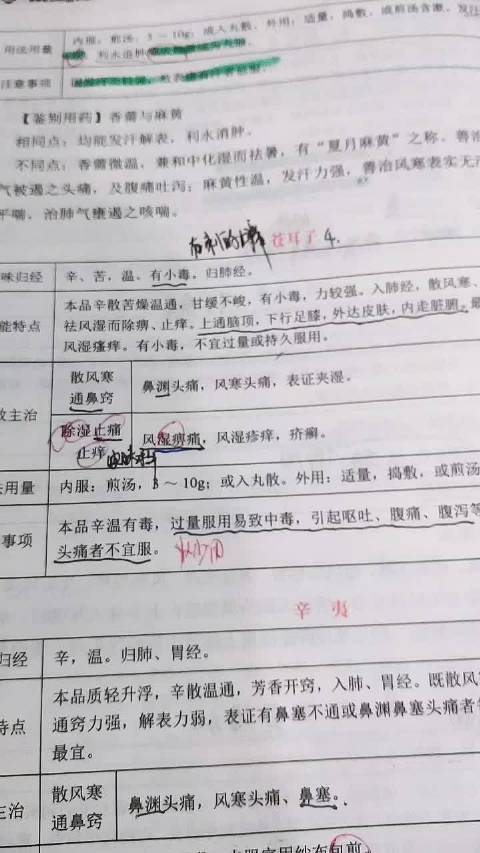 用法用量 内服：煎汤，3～10g；或入丸散。外用：适量，捣敷，或煎汤含漱。发汗
利水退肿
注意事项
【鉴别用药】香薷与麻黄
相同点：均能发汗解表，利水消肿。
不同点：香薷微温，兼和中化湿而祛暑，有“夏月麻黄”之称，善治
气被遏之头痛，及腹痛吐泻；麻黄性温，发汗力强，善治风寒表实无汗
平喘，治肺气壅遏之咳喘。
苍耳子 4.
味归经 辛、苦，温。有小毒。归肺经。
能特点 本品辛散苦燥温通，甘缓不峻，有小毒，力较强。入肺经，散风寒、
祛风湿而除痹、止痒。上通脑顶，下行足膝，外达皮肤，内走脏腑，最
风湿瘙痒。有小毒，不宜过量或持久服用。
主治 散风寒
通鼻窍 鼻渊头痛，风寒头痛，表证夹湿。
除湿止痛
止痒 风湿痹痛，风湿疹痒，疥癣。
用量 内服：煎汤，3～10g；或入丸散。外用：适量，捣敷，或煎汤
事项 本品辛温有毒，过量服用易致中毒，引起呕吐、腹痛、腹泻等
头痛者不宜服。
辛夷
归经 辛，温。归肺、胃经。
特点 本品质轻升浮，辛散温通，芳香开窍，入肺、胃经。既散风
通窍力强，解表力弱，表证有鼻塞不通或鼻渊鼻塞头痛者
最宜。
主治 散风寒
通鼻窍 鼻渊头痛，风寒头痛、鼻塞。
用纱布包煎。